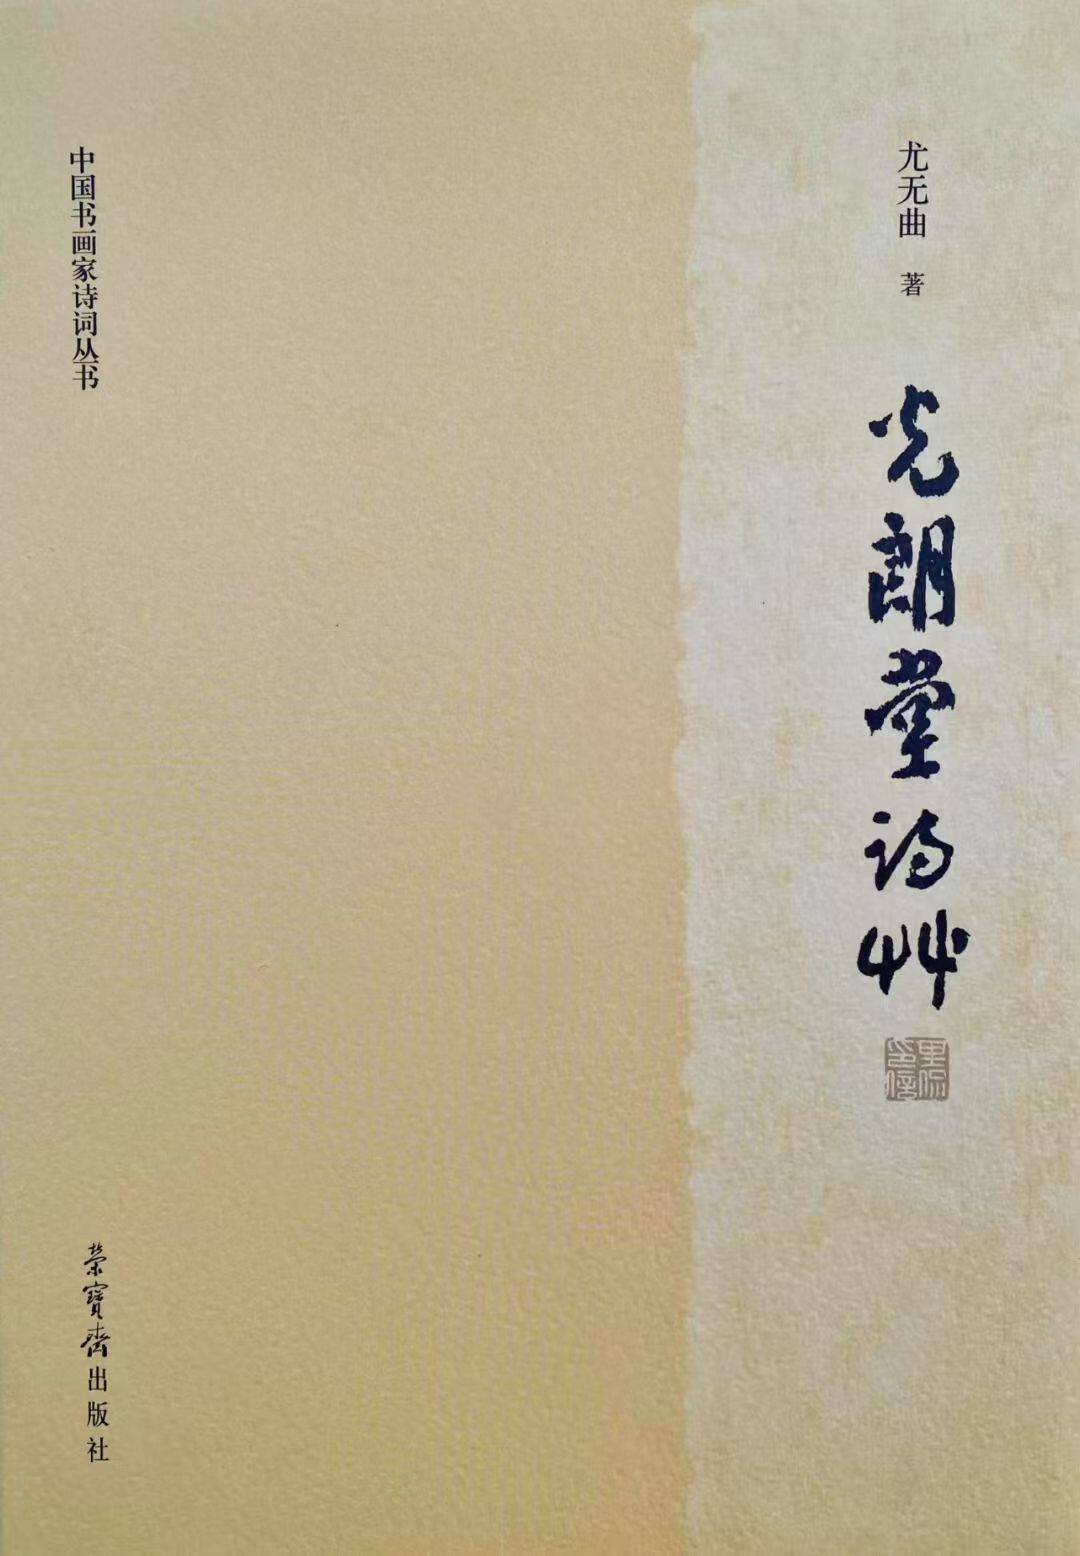 尤无曲 著
光朗堂诗艸
中国书画家诗词丛书
荣寶斋出版社